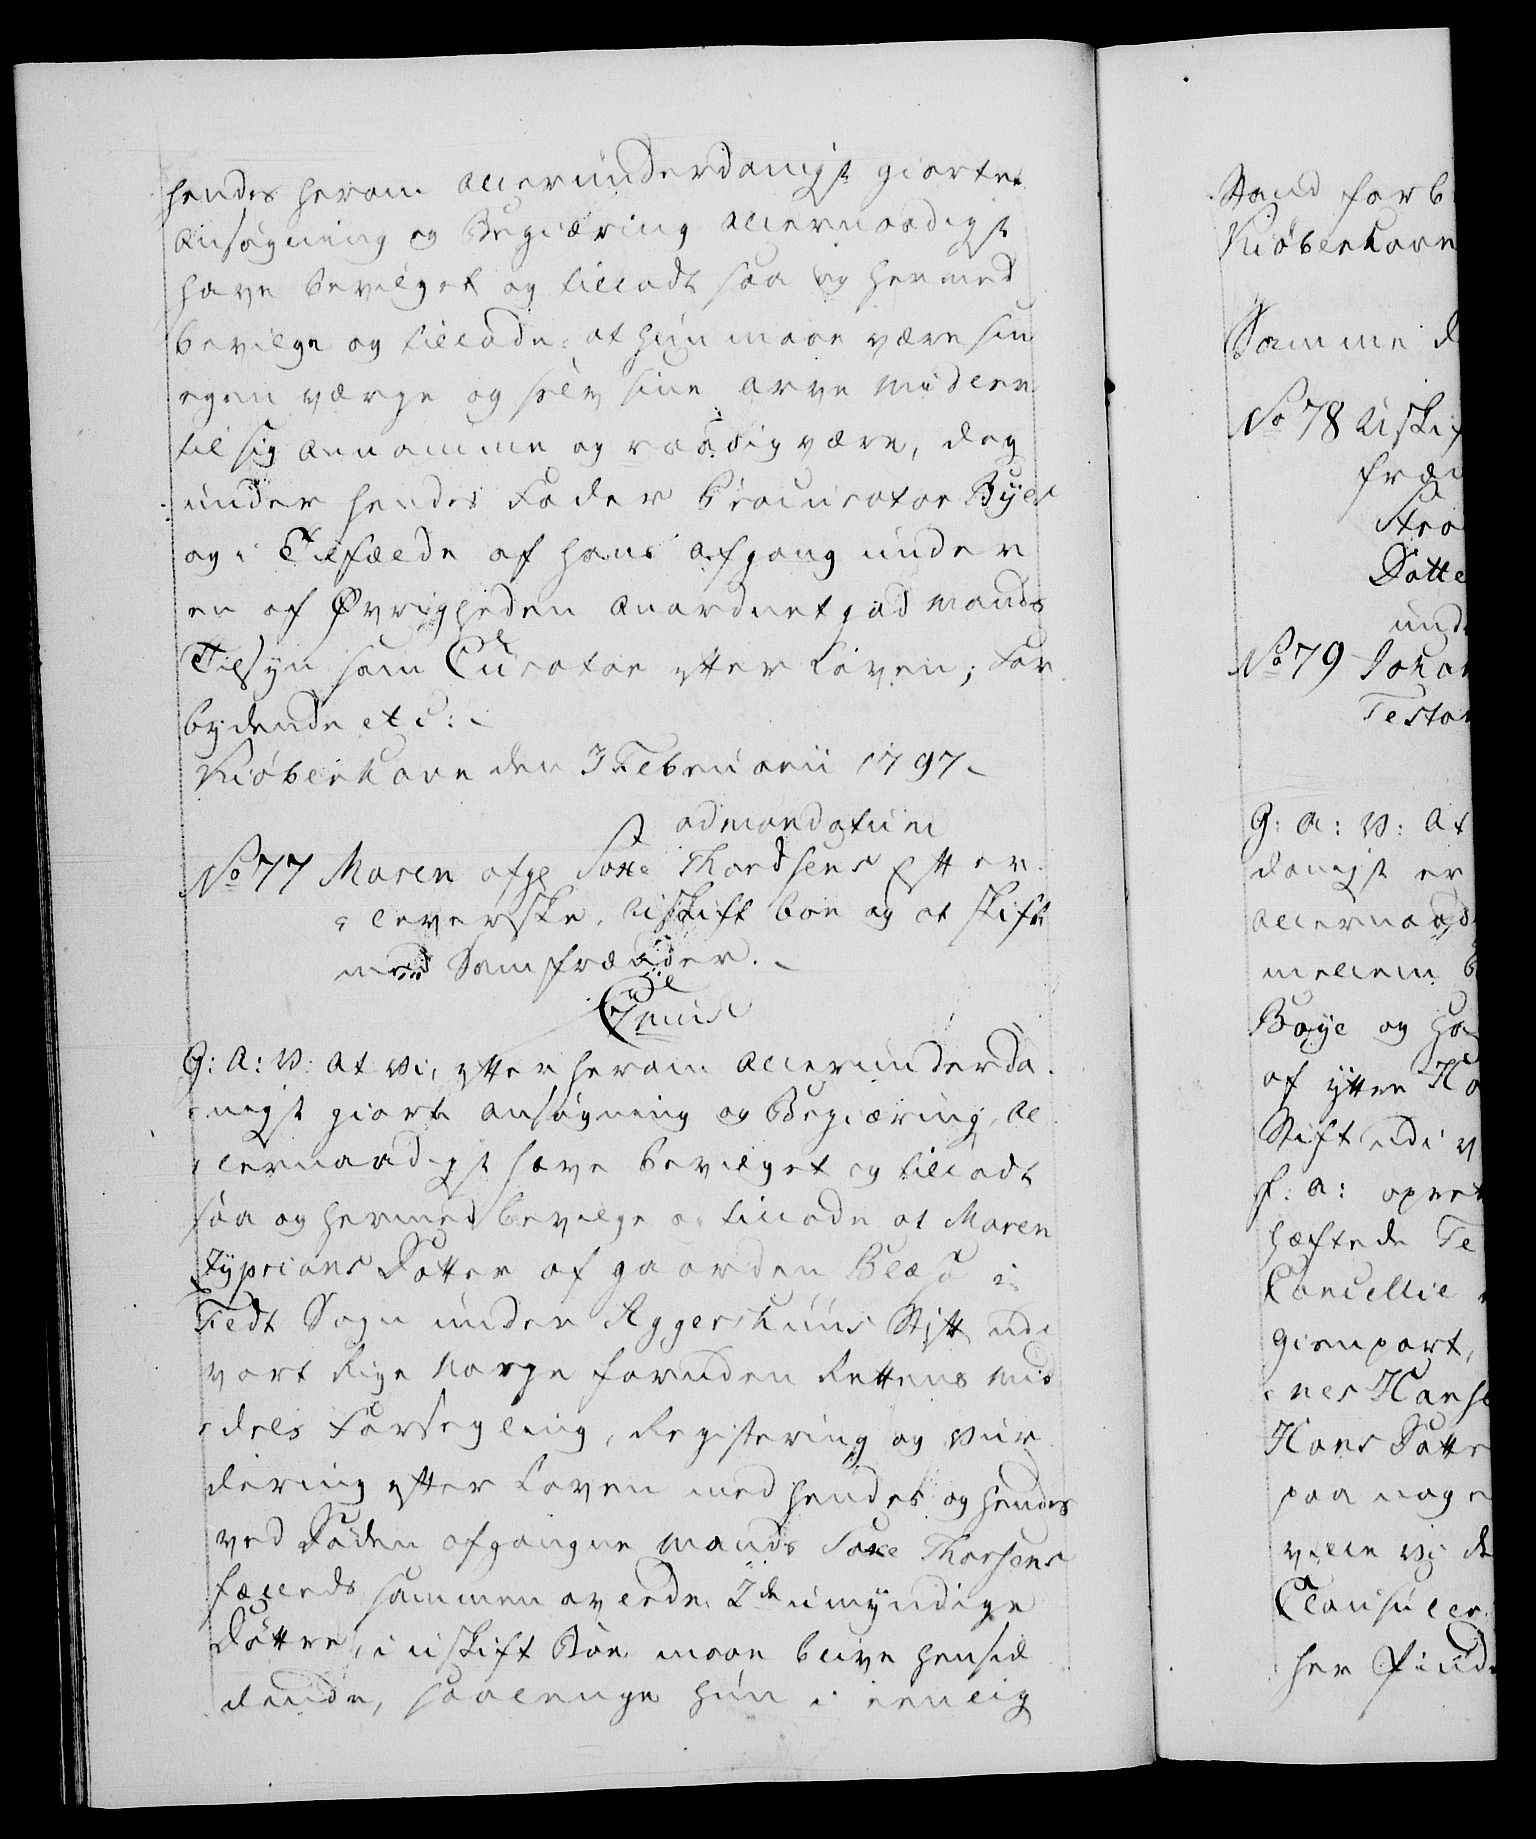 hendes herom allerunderdanigst giorte
Ansøgning og Begiæring allernaadigst
have bevilget og tilladt saa og hermed
bevilge og tillade: at hun maae være sin
egen værge og selv sine Arve Midler
til sig annamme og raadig være, dog
under hendes Fader Procurator Byes
og i Tilfælde af hans Afgang under
en af Øvrigheden anordnet god Mands
Tilsyn som Curator efter Loven; For
bydende etc:
Kiøbenhavn den 3 Februarii 1797
ad mandatum
No 77 Maren afg: Thordsens Efter
leverske, Uskift boe og at skifte
med Samfrænder.
G: A: V: At Vi, efter herom allerunderda
nigst giorte Ansøgning og Begiæring, al
lernaadigst have bevilget og tilladt
saa og hermed bevilge og tillade at Maren
Zyprians Datter af gaarden i
Sogn under Aggershuus Stift udi
vort Rige Norge foruden Rettens Mid
dels Forsegling, Registering og Vur
dering efter Loven med hendes og hendes
ved Døden afgangne Mands Thorsens
fælleds sammen avlede 2de umyndige
Døttre, i uskift Boe maae blive hensid
dende, saalenge hun i eenlig
Stand forb
Kiøbenhavn
Samme d
No 78 Uskif
fræn
Datte
und
No 79 Johan
Testam
G: A: V: At
danigst er
allernaad
mellem
Boye og
af ytre
Stift udi v
f: a: opret
hæftede Te
Cancellie
Gienpart,
nes Hanse
Hans Datte
paa nog
ville Vi d
Clausuler
her